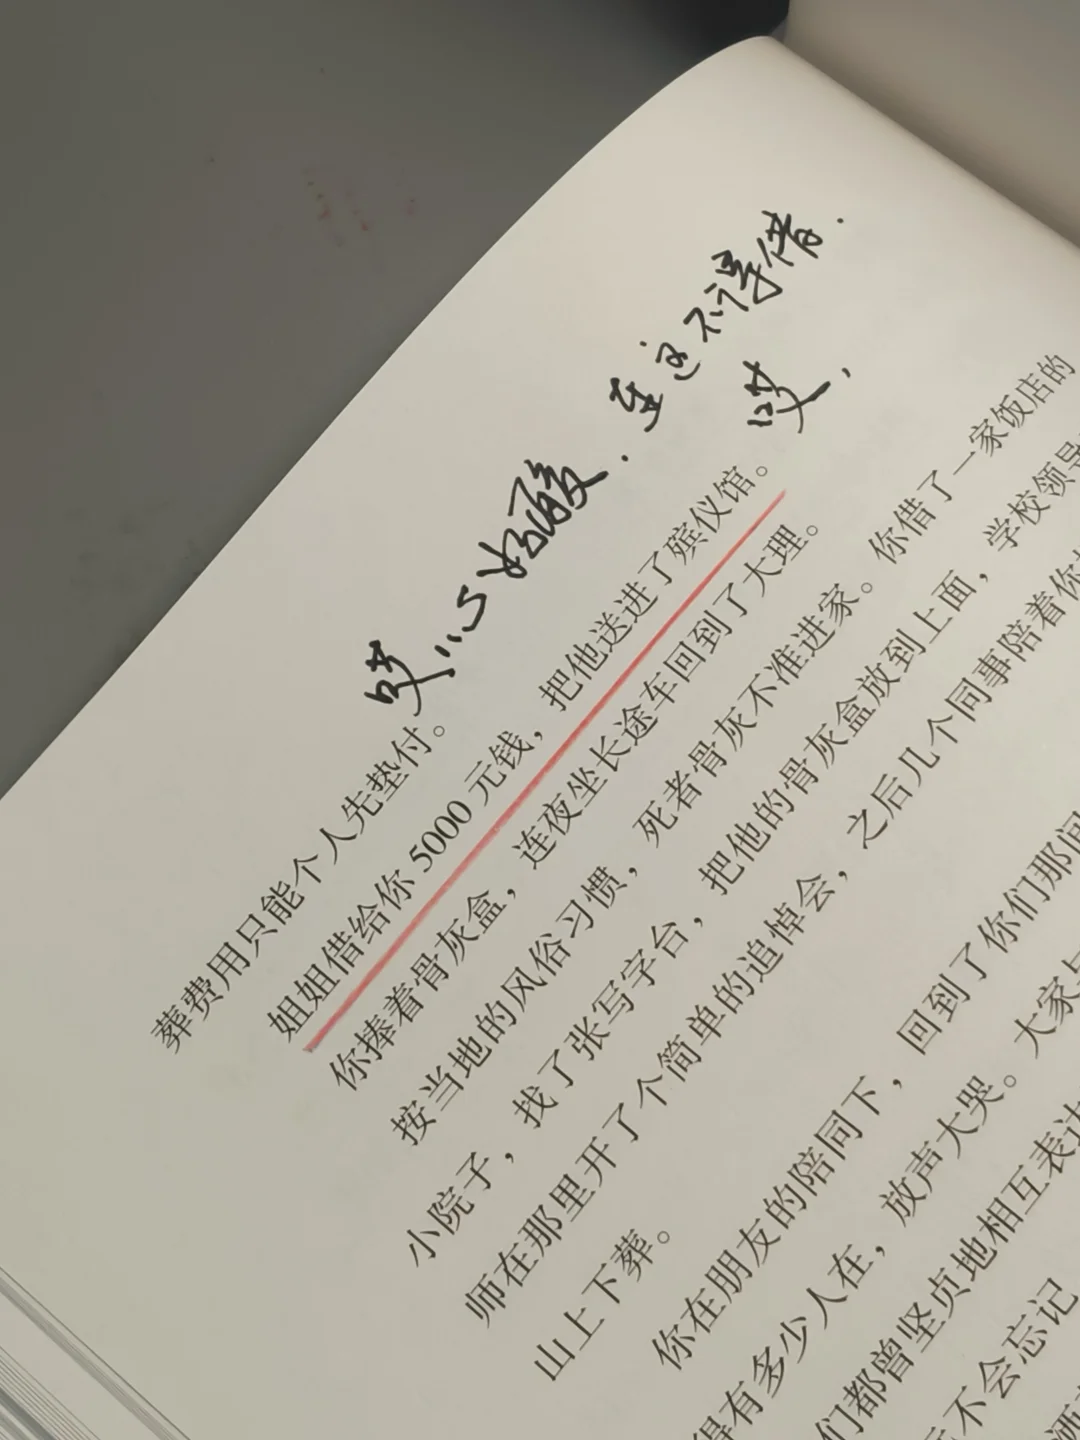 哎 心好酸. 连这都得借.
哎,
葬费用只能个人先垫付。
姐姐借给你 5000 元钱，把他送进了殡仪馆。
你捧着骨灰盒，连夜坐长途车回到了大理。
按当地的风俗习惯，死者骨灰不准进家。你借了一家饭店的
小院子，找了张写字台，把他的骨灰盒放到上面，学校领导
师在那里开了个简单的追悼会，之后几个同事陪着你
山上下葬。
你在朋友的陪同下，回到了你们那间
得有多少人在，放声大哭。大家
们都曾坚贞地相互表达
不会忘记